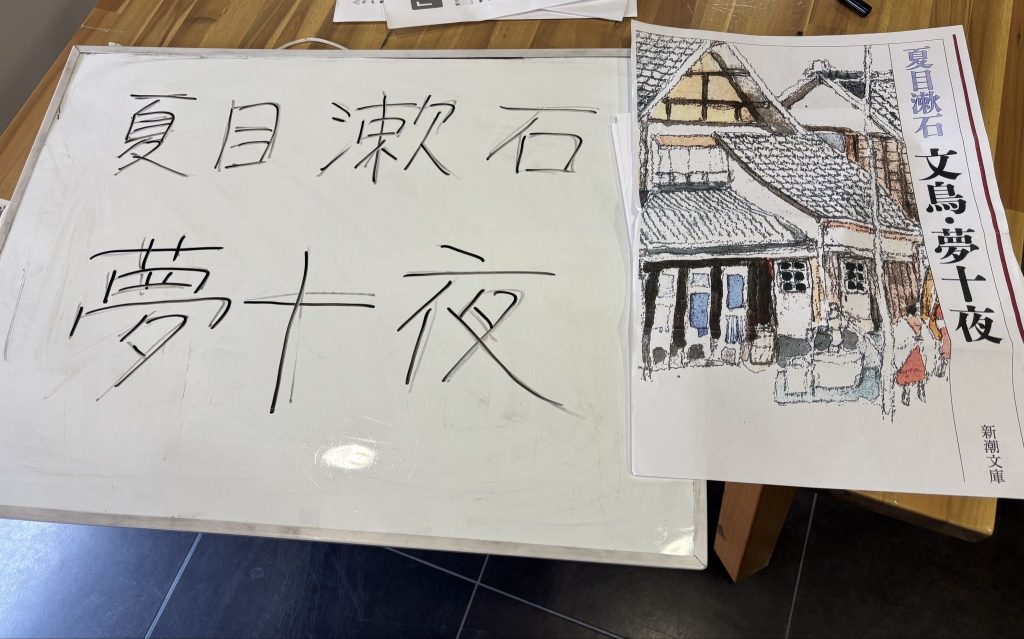 夏目漱石
夢十夜
夏目漱石
文鳥・夢十夜
新潮文庫